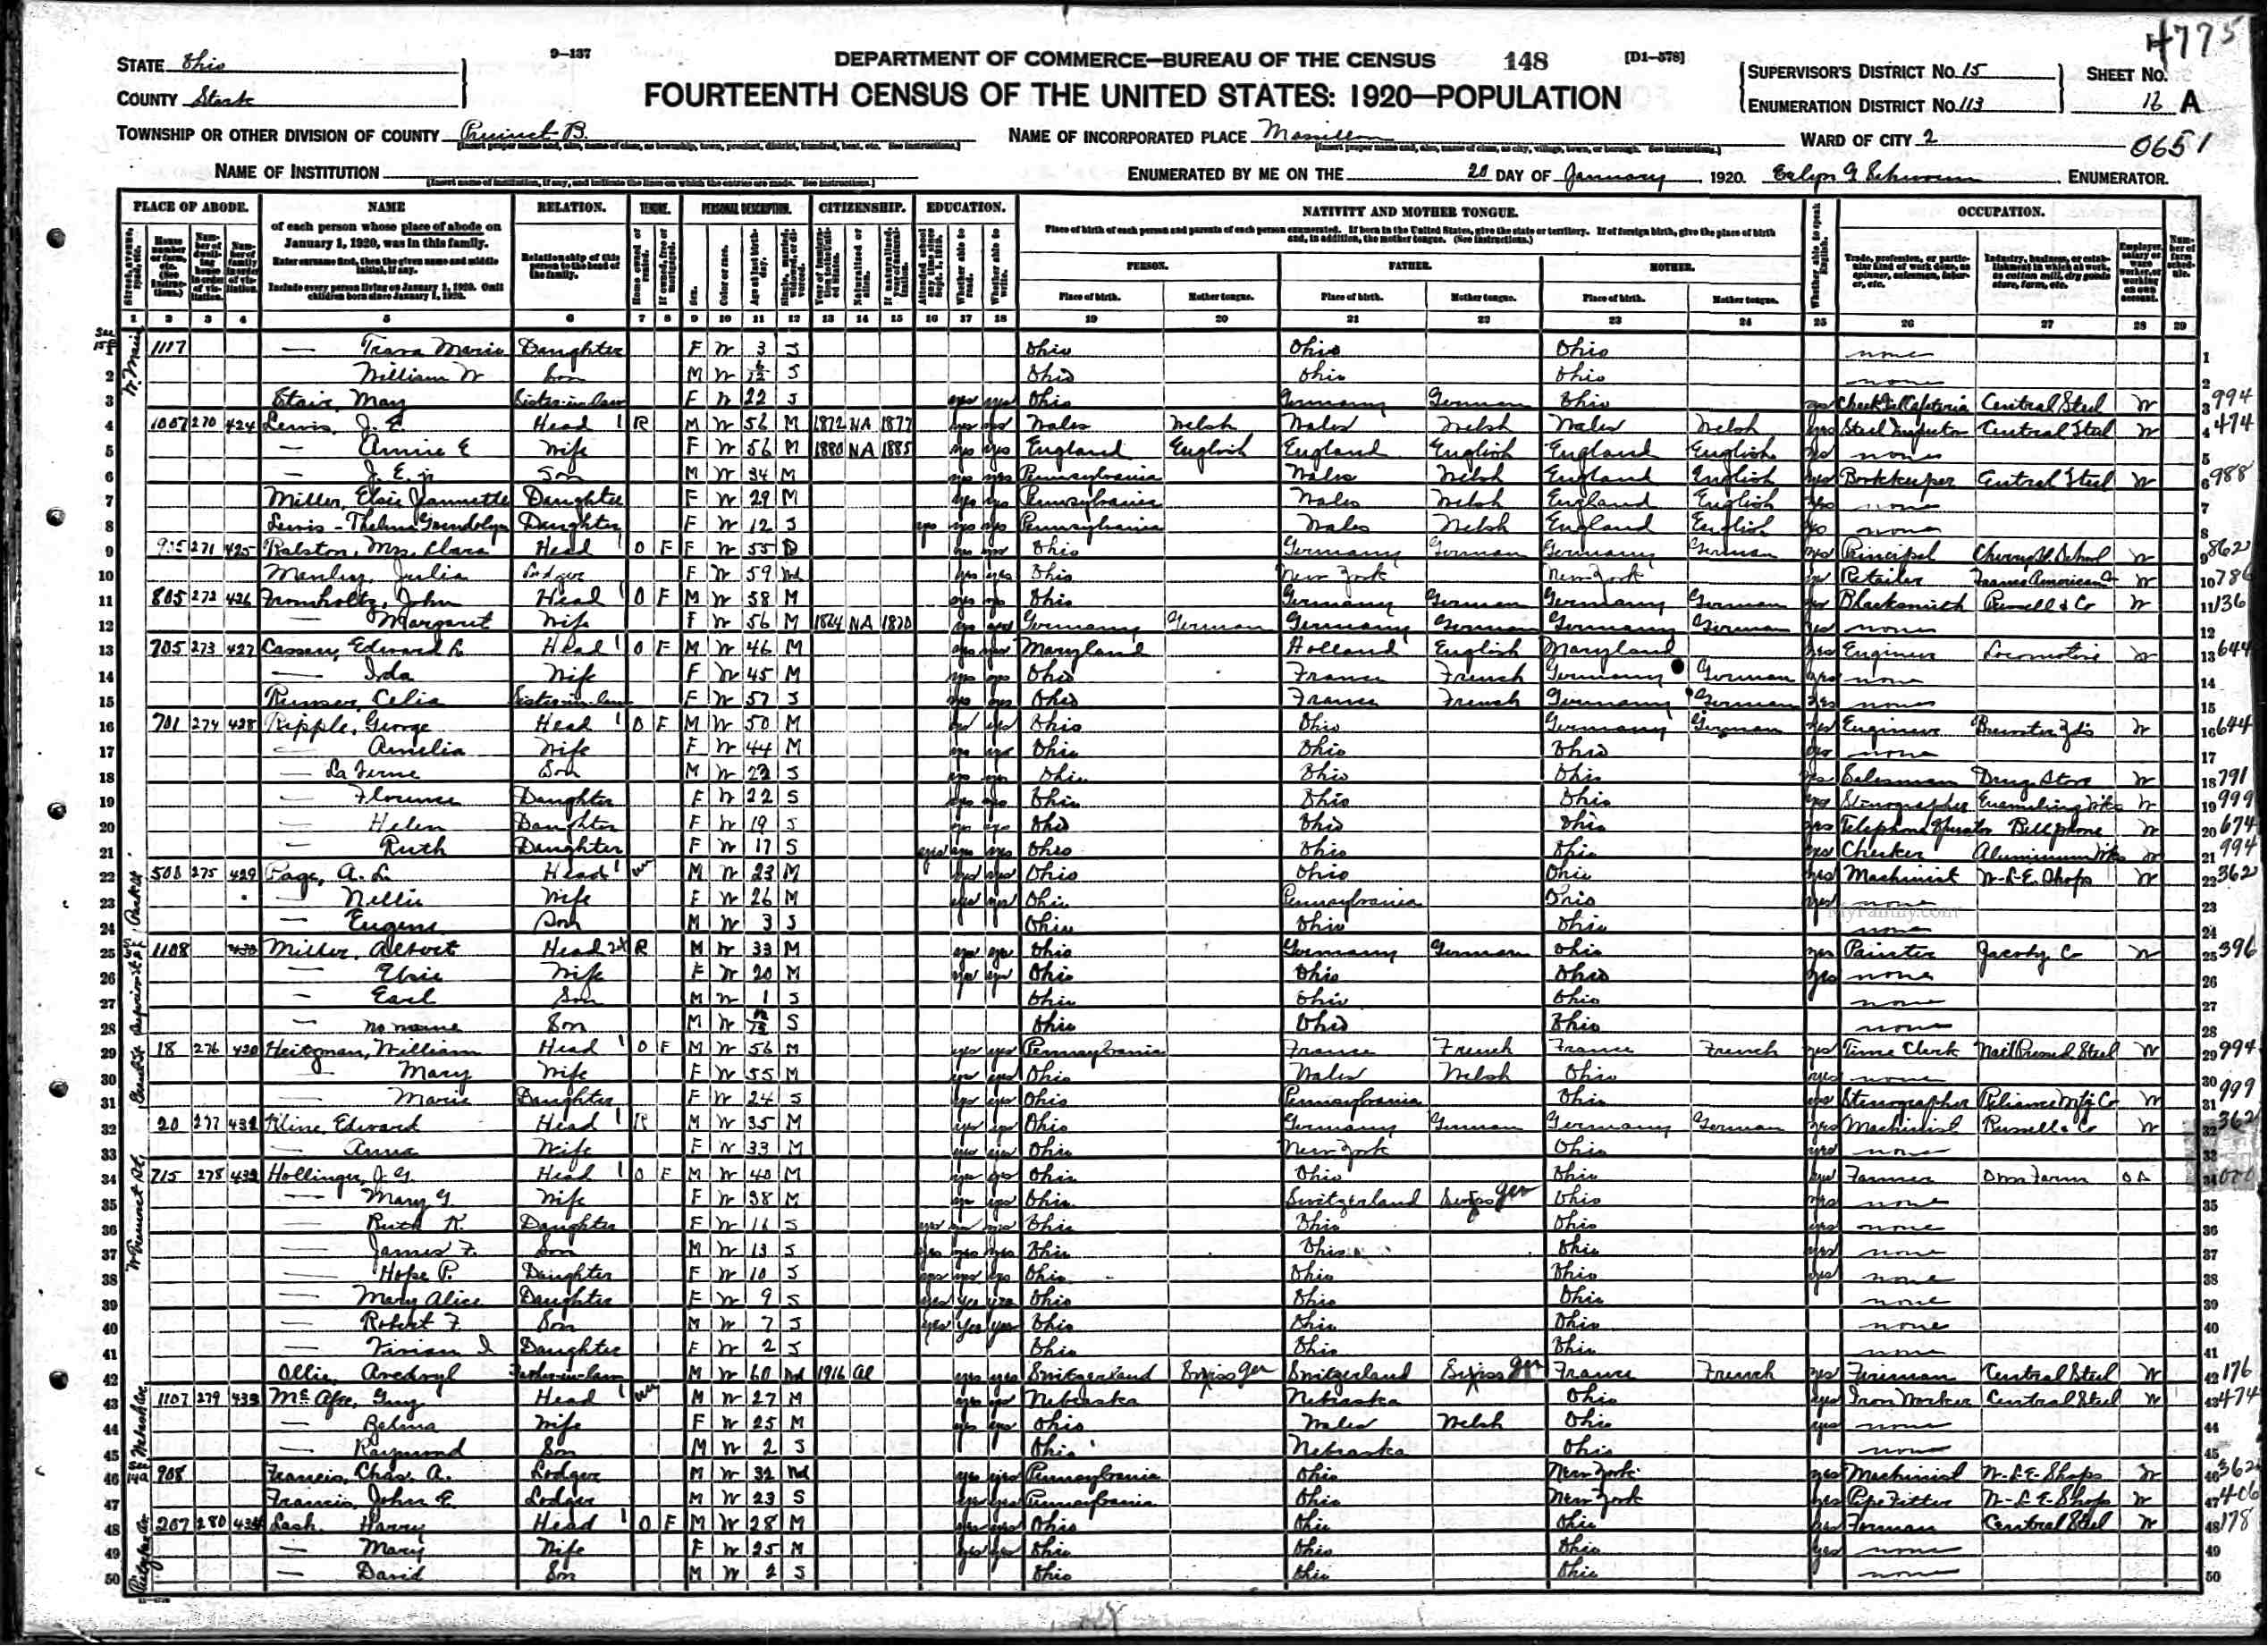 4775
STATE Ohio
9-137
DEPARTMENT OF COMMERCE—BUREAU OF THE CENSUS
148
[D1-578]
SUPERVISOR'S DISTRICT No. 15
SHEET No.
COUNTY Stark
FOURTEENTH CENSUS OF THE UNITED STATES: 1920—POPULATION
ENUMERATION DISTRICT No. 113
A
TOWNSHIP OR OTHER DIVISION OF COUNTY Precinct B.
NAME OF INCORPORATED PLACE Massillon
WARD OF CITY 2
0651
NAME OF INSTITUTION
ENUMERATED BY ME ON THE 20 DAY OF January, 1920.
ENUMERATOR.
PLACE OF ABODE. NAME RELATION. TENURE. PERSONAL DESCRIPTION. CITIZENSHIP. EDUCATION. NATIVITY AND MOTHER TONGUE. OCCUPATION.
of each person whose place of abode on January 1, 1920, was in this family.
Enter surname first, then the given name and middle initial, if any.
Include every person living on January 1, 1920. Omit children born since January 1, 1920.
Relationship of this person to the head of the family.
Place of birth of each person and parents of each person enumerated. If born in the United States, give the state or territory. If of foreign birth, give the place of birth and, in addition, the mother tongue. (See Instructions.)
PERSON. FATHER. MOTHER.
Place of birth. Mother tongue. Place of birth. Mother tongue. Place of birth. Mother tongue.
1 2 3 4 5 6 7 8 9 10 11 12 13 14 15 16 17 18 19 20 21 22 23 24 25 26 27 28 29
1 1117 — Marie Daughter F W 3 S Ohio Ohio Ohio none
2 William W Son M W S Ohio Ohio Ohio none
3 Stair, May Sister-in-law F W 22 S yes yes Ohio Germany German Ohio yes Cafeteria Central Steel W 994
4 1007 270 424 Lewis, J. E. Head 1 R M W 56 M 1872 NA 1877 yes yes Wales Welsh Wales Welsh Wales Welsh yes Steel Inspector Central Steel W 474
5 — Annie E Wife F W 56 M 1880 NA 1885 yes yes England English England English England English yes none
6 — J. E. jr Son M W 34 M yes yes Pennsylvania Wales Welsh England English yes Bookkeeper Central Steel W 988
7 Miller, Elsie Jeannette Daughter F W 29 M yes yes Pennsylvania Wales Welsh England English yes none
8 Lewis - Thelma Gwendolyn Daughter F W 12 S yes yes yes Pennsylvania Wales Welsh England English yes none
9 271 425 Ralston, Mrs. Clara Head O F F W 55 D yes yes Ohio Germany German Germany German yes Principal Cherry St. School W 862
10 Manley, Julia Lodger F W 59 Wd yes yes Ohio New York New York yes Retailer W 786
11 805 272 426 Fromholtz, John Head 1 O F M W 58 M yes yes Ohio Germany German Germany German yes Blacksmith Russell & Co W 136
12 — Margaret Wife F W 56 M 1864 NA 1870 yes yes Germany German Germany German Germany German yes none
13 705 273 427 Edward L. Head 1 O F M W 46 M yes yes Maryland Holland English Maryland yes Engineer Locomotive W 644
14 — Ida Wife F W 45 M yes yes Ohio France French Germany German yes none
15 Celia Sister-in-law F W 57 S yes yes Ohio France French Germany German yes none
16 701 274 428 Ripple, George Head 1 O F M W 50 M yes yes Ohio Ohio Germany German yes Engineer Brewster W 644
17 — Amelia Wife F W 44 M yes yes Ohio Ohio Ohio yes none
18 — La Verne Son M W 22 S yes yes Ohio Ohio Ohio yes Salesman Drug Store W 791
19 — Florence Daughter F W 22 S yes yes Ohio Ohio Ohio yes Stenographer Enameling Wks W 999
20 — Helen Daughter F W 19 S yes yes Ohio Ohio Ohio yes Telephone Operator Bell phone W 674
21 — Ruth Daughter F W 17 S yes yes yes Ohio Ohio Ohio yes Checker Aluminum Wks W 994
22 508 275 429 Page, A. L. Head 1 M W 23 M yes yes Ohio Ohio Ohio yes Machinist W-L-E. Shops W 362
23 — Nellie Wife F W 26 M yes yes Ohio Pennsylvania Ohio yes none
MyFamily.com
24 — Eugene Son M W 3 S Ohio Ohio Ohio none
25 1108 Miller, Albert Head R M W 33 M yes yes Ohio Germany German Ohio yes Painter Jacoby Co W 396
26 — Elsie Wife F W 20 M yes yes Ohio Ohio Ohio yes none
27 — Earl Son M W 1 S Ohio Ohio Ohio none
28 — no name Son M W S Ohio Ohio Ohio none
29 18 276 430 Heitzman, William Head 1 O F M W 56 M yes yes Pennsylvania France French France French yes Time Clerk Nat'l Pressed Steel W 994
30 — Mary Wife F W 55 M yes yes Ohio Wales Welsh Ohio yes none
31 — Marie Daughter F W 24 S yes yes Ohio Pennsylvania Ohio yes Stenographer Reliance Mfg Co W 999
32 20 277 431 Kline, Edward Head 1 R M W 35 M yes yes Ohio Germany German Germany German yes Machinist Russell & Co W 362
33 — Anna Wife F W 33 M yes yes Ohio New York Ohio yes none
34 715 278 432 Hollinger, J. G. Head 1 O F M W 40 M yes yes Ohio Ohio Ohio yes Farmer Own Farm OA 000
35 — Mary G. Wife F W 38 M yes yes Ohio Switzerland Swiss ger Ohio yes none
36 — Ruth K. Daughter F W 16 S yes yes yes Ohio Ohio Ohio yes none
37 — James F. Son M W 13 S yes yes yes Ohio Ohio Ohio yes none
38 — Hope P. Daughter F W 10 S yes yes yes Ohio Ohio Ohio yes none
39 — Mary Alice Daughter F W 9 S yes yes yes Ohio Ohio Ohio none
40 — Robert F. Son M W 7 S yes yes yes Ohio Ohio Ohio none
41 — Vivian I Daughter F W 2 S Ohio Ohio Ohio none
42 Ollie, Father-in-law M W 60 Wd 1916 Al yes yes Switzerland Swiss ger Switzerland Swiss ger France French yes Fireman Central Steel W 176
43 1107 279 433 McAfee, Guy Head 1 M W 27 M yes yes Nebraska Nebraska Ohio yes Iron Worker Central Steel W 474
44 — Zelma Wife F W 25 M yes yes Ohio Wales Welsh Ohio yes none
45 — Raymond Son M W 2 S Ohio Nebraska Ohio none
46 908 Francis, Chas. A. Lodger M W 32 Wd yes yes Pennsylvania Ohio New York yes Machinist W-L-E-Shops W 362
47 Francis, John E. Lodger M W 23 S yes yes Pennsylvania Ohio New York yes Pipe Fitter W-L-E-Shops W 406
48 207 280 434 Lash, Harry Head 1 O F M W 28 M yes yes Ohio Ohio Ohio yes Forman Central Steel W 178
49 — Mary Wife F W 25 M yes yes Ohio Ohio Ohio yes none
50 — David Son M W 2 S Ohio Ohio Ohio none